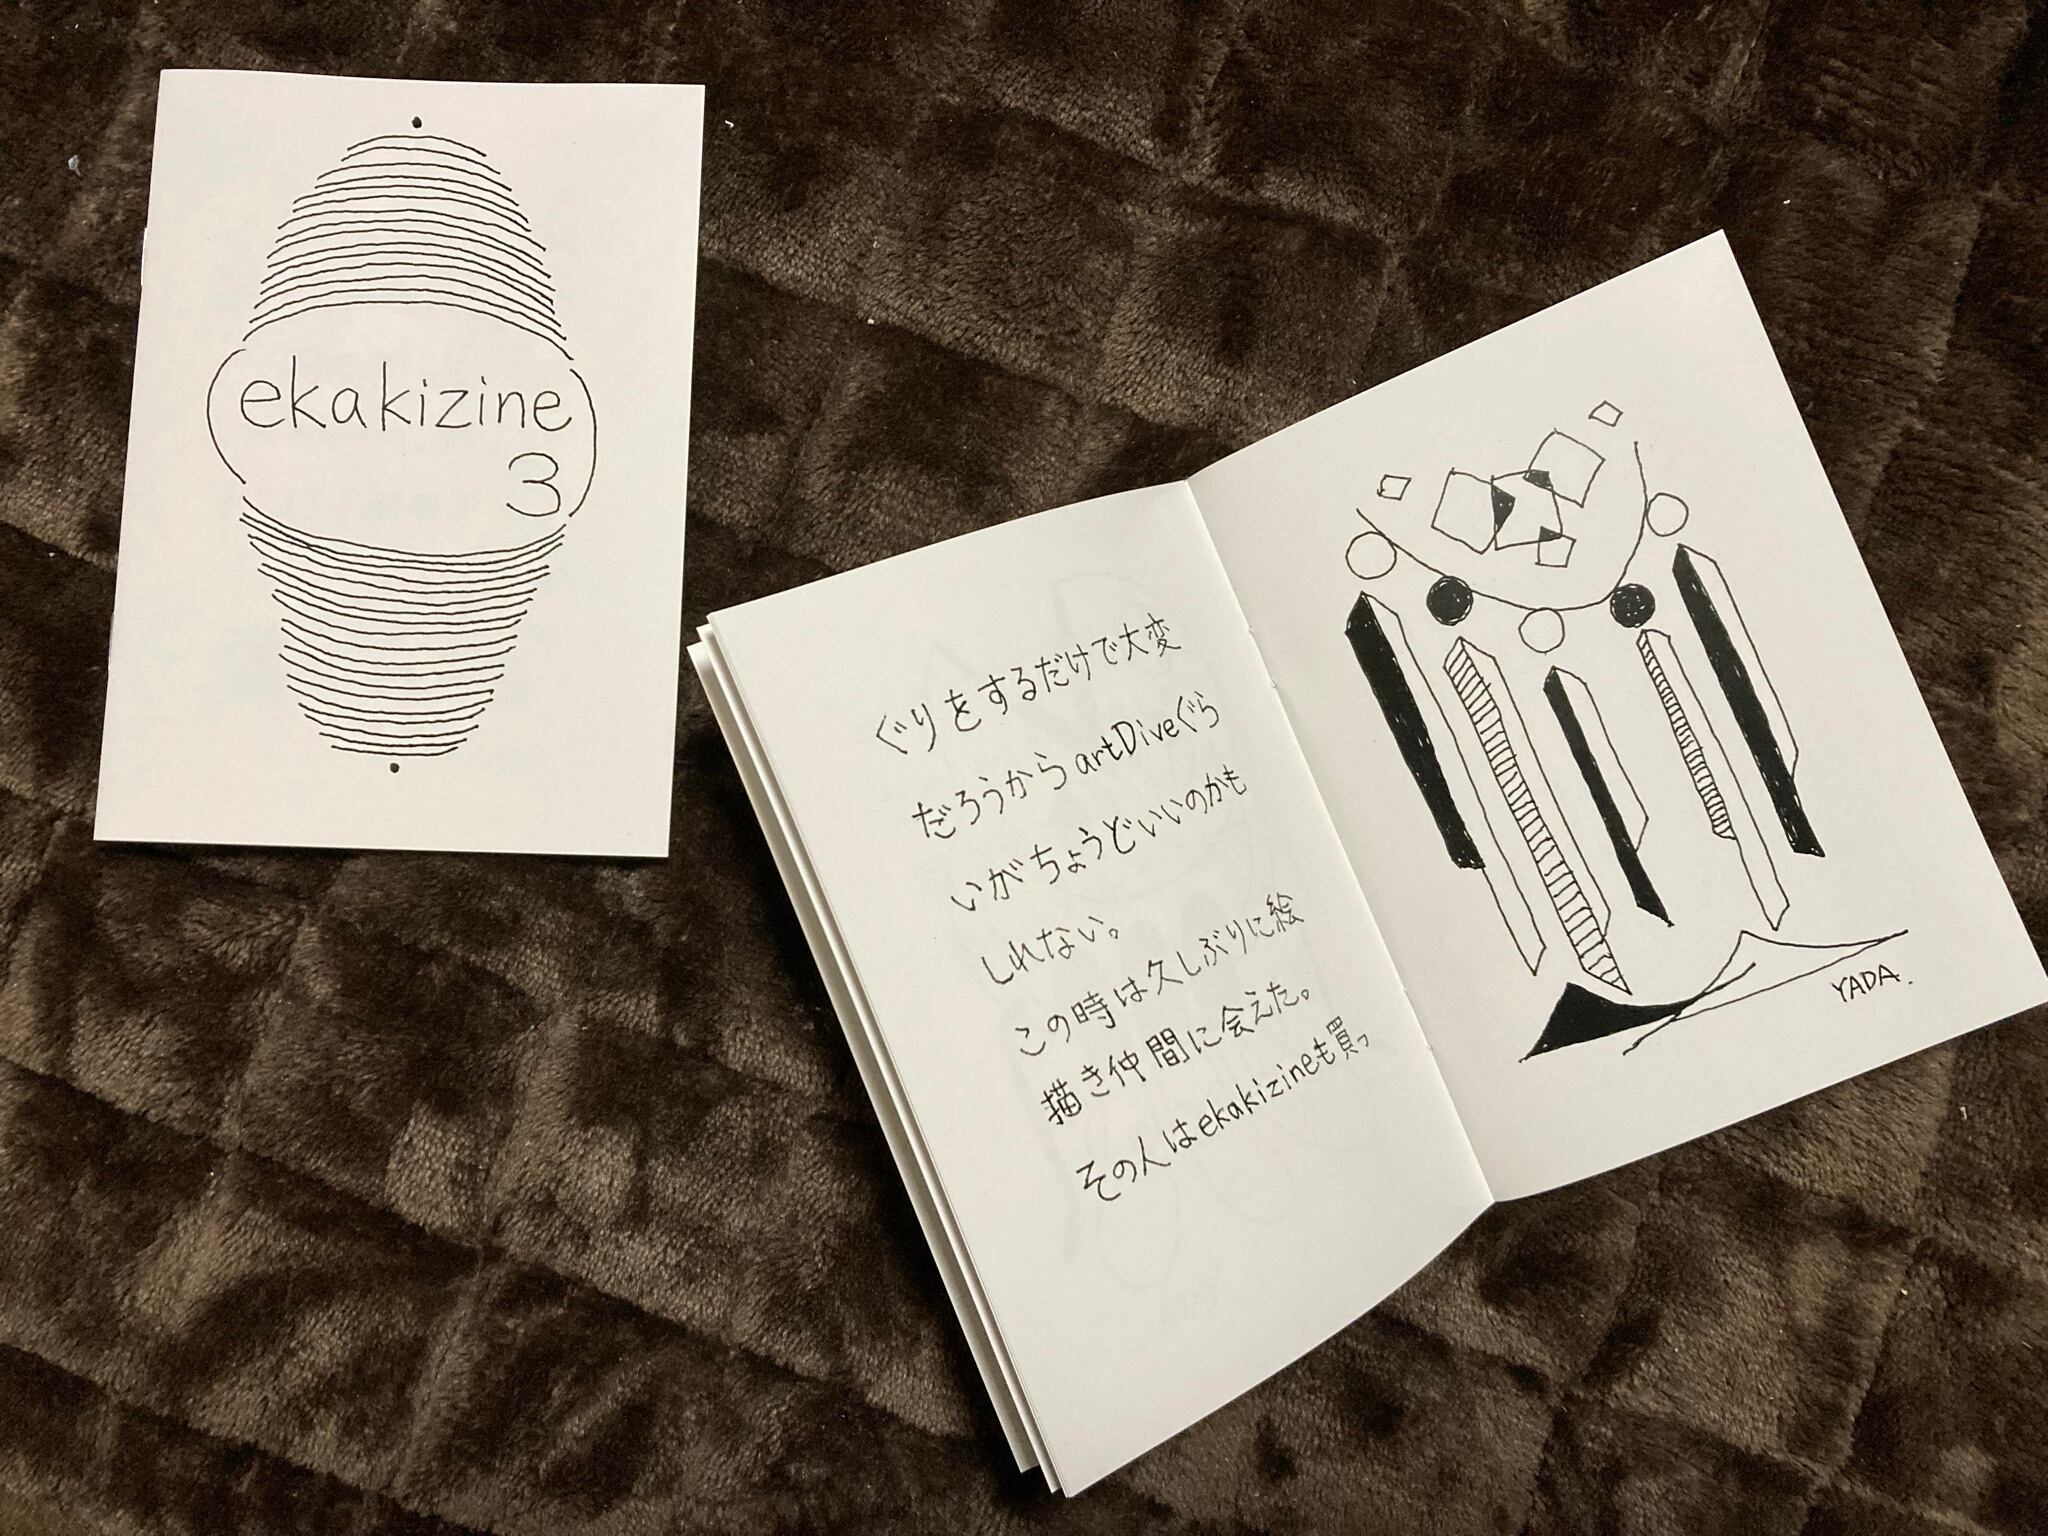 ekakizine
3
ぐりをするだけで大変
だろうからartDiveぐら
いがちょうどいいのかも
しれない。
この時は久しぶりに絵
描き仲間に会えた。
その人はekakizineも買っ
YADA.